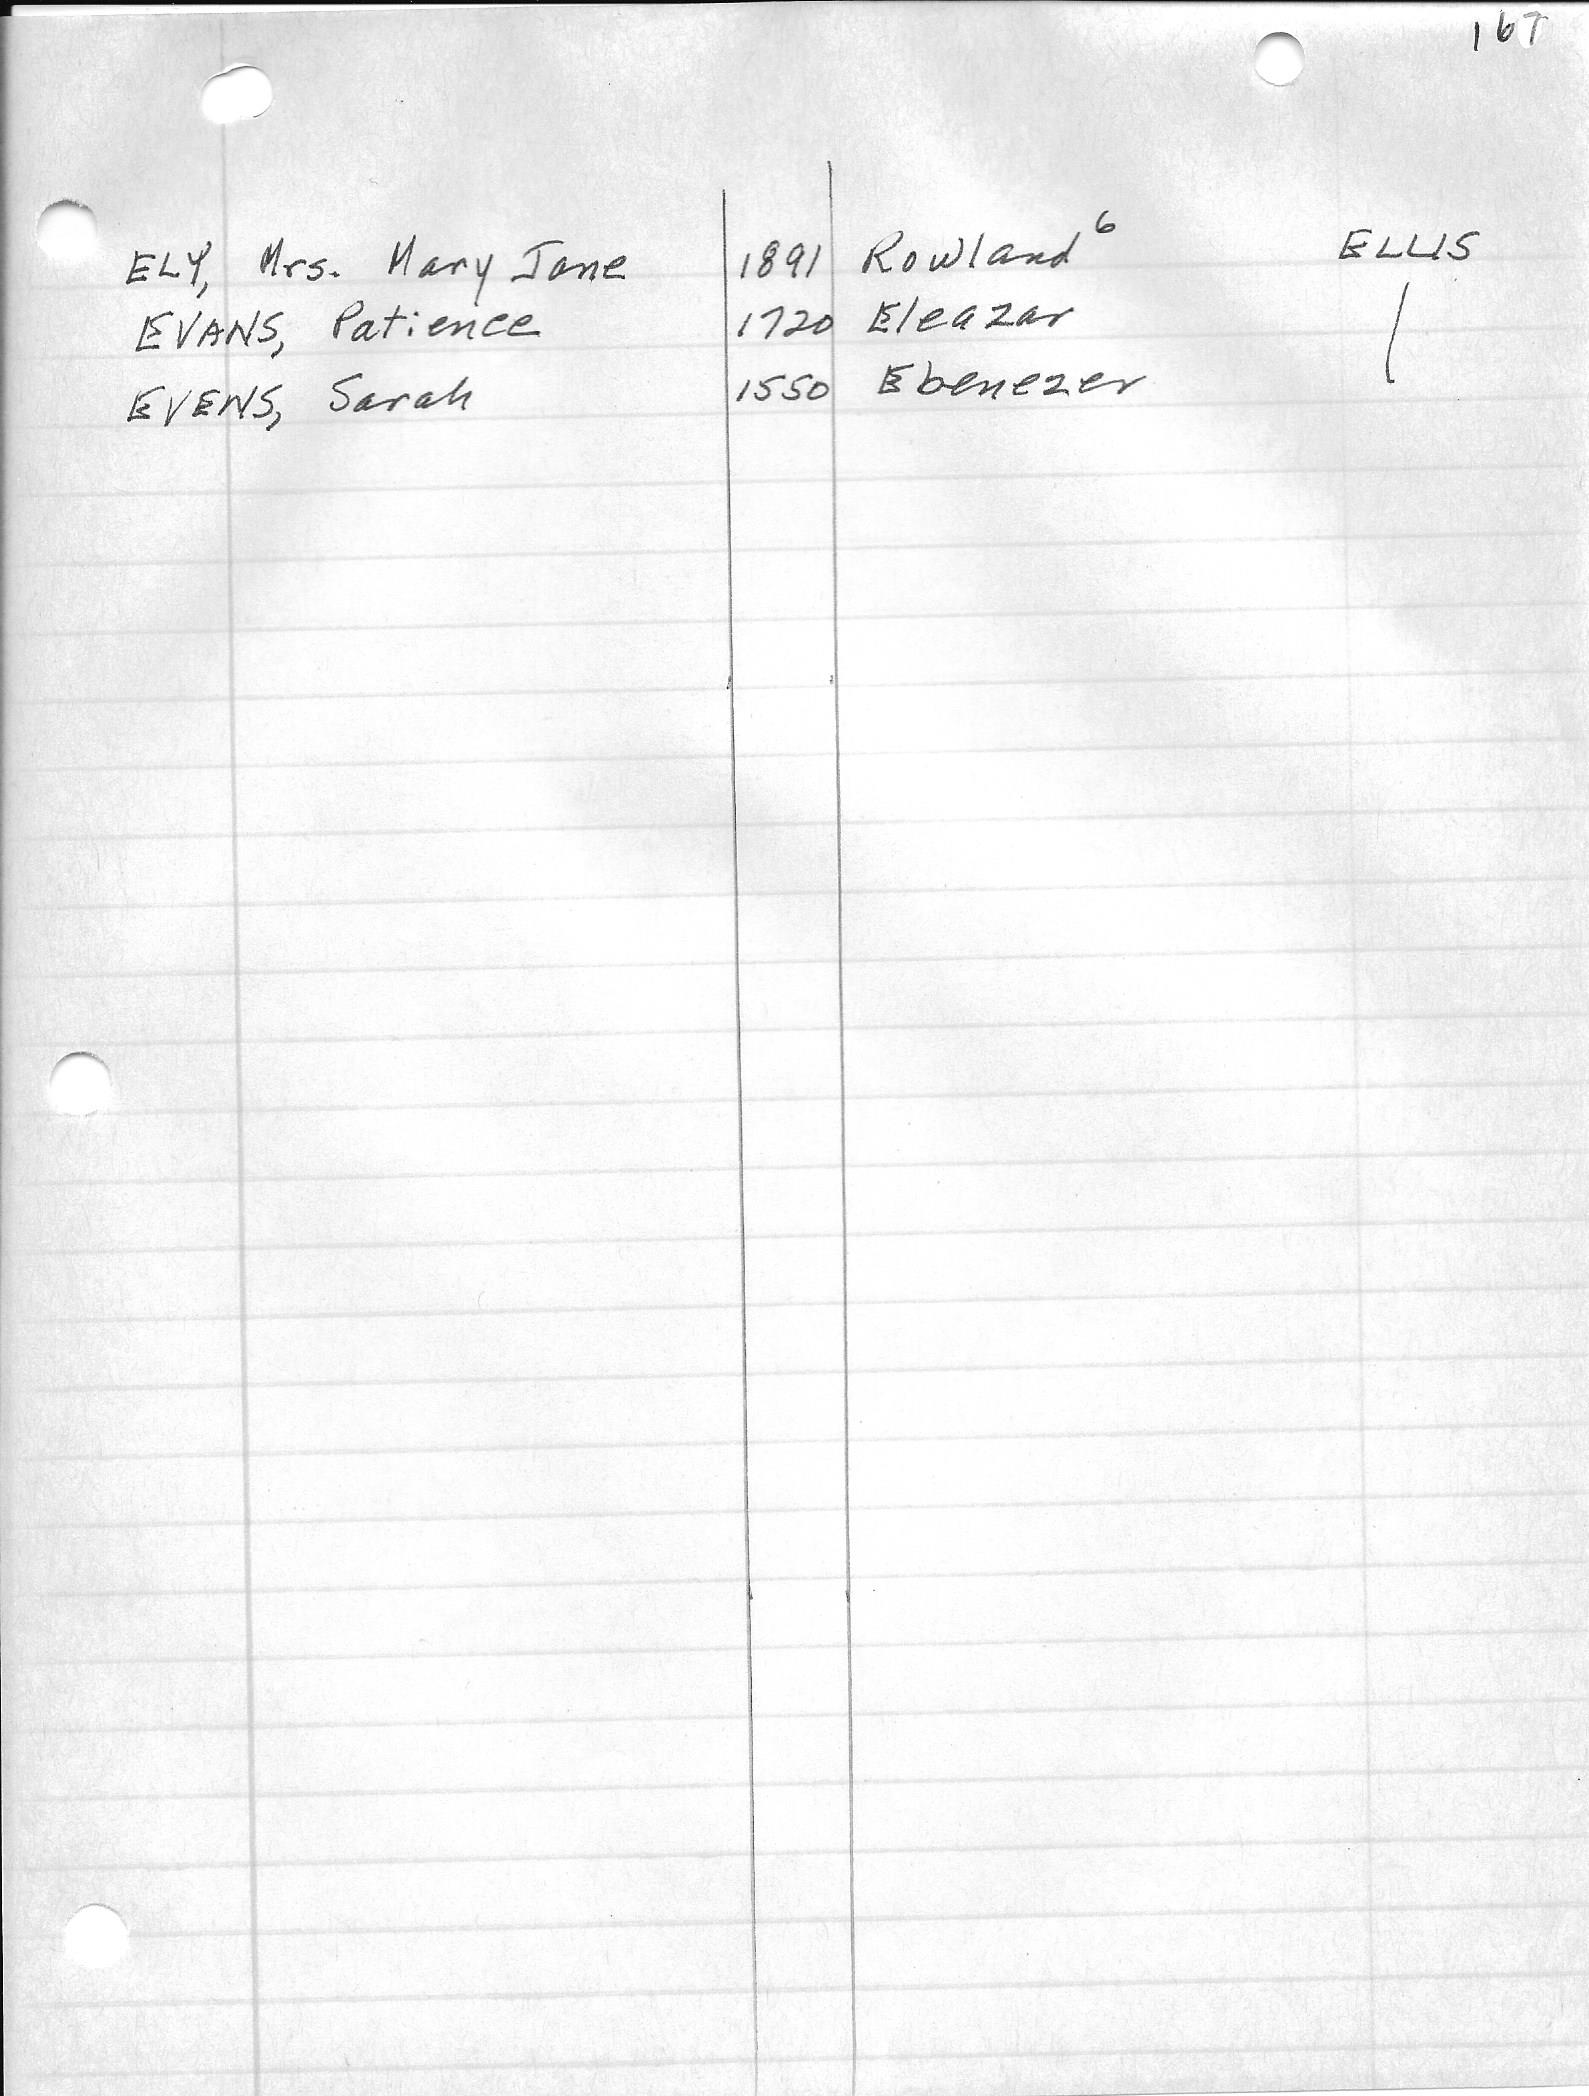 167
ELY, Mrs. Mary Jane 1891 Rowland⁶ ELLIS
EVANS, Patience 1720 Eleazar |
EVENS, Sarah 1550 Ebenezer